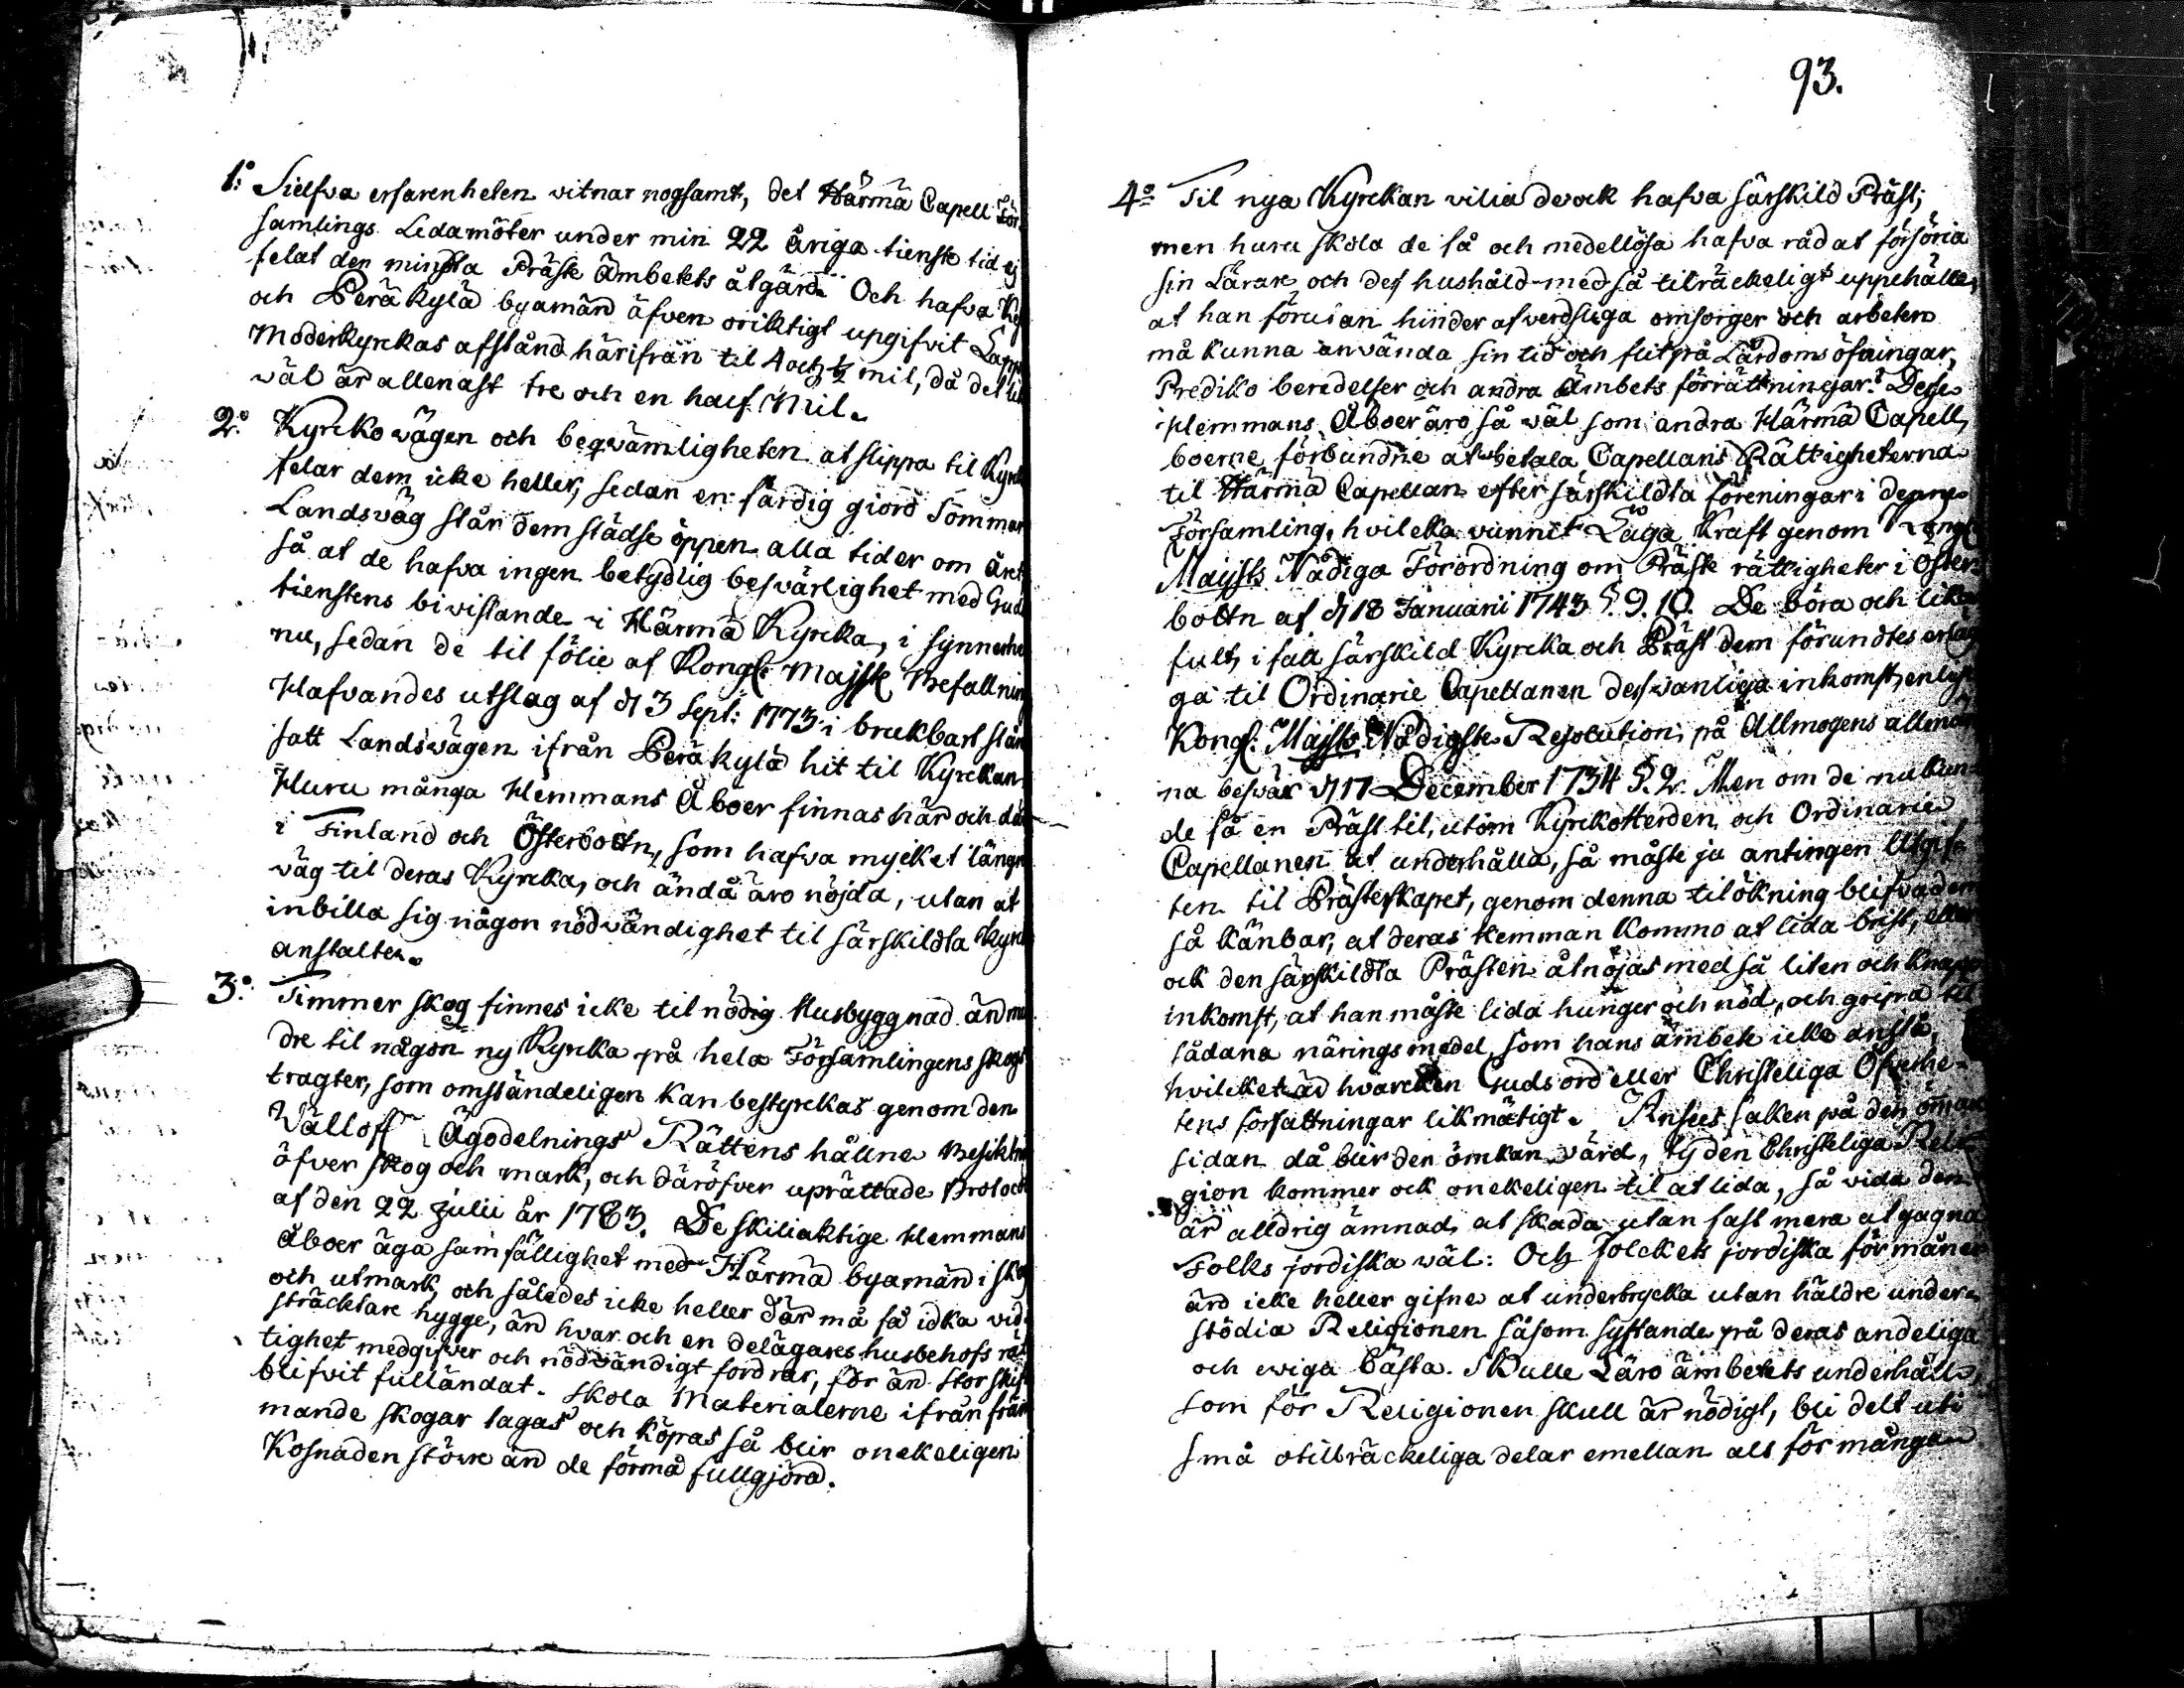 1:o Sielfva erfarenheten vitnar nogsamt, det Härmä Capell För
samlings Ledamöter under min 22 åriga tienste tid ej
felat den minsta Präste Ämbetets åtgärd. Och hafva
och Peräkylä byamän äfven oriktigt upgifvit Lappo
Moderkyrckas afstånd härifrån til 4 och ½ mil, då det
wäl är allenast tre och en half Mil.
2:o Kyrcko vägen och beqvämligheten at slippa til Kyrck
felar dem icke heller, sedan en färdig giord Sommar
Landsväg står dem städse öppen alla tider om året
så at de hafva ingen betydlig besvärlighet med Guds
tienstens bivistande i Härmä Kyrcka, i synnerhet
nu, sedan de til fölie af Kongl: Majsts Befallnings
Hafvandes utslag af d 3 Sept: 1773 i brukbart stånd
satt Landsvägen ifrån Peräkylä hit til Kyrckan.
Huru många Hemmans Åboer finnas här och där
i Finland och Österbottn, som hafva mycket längre
väg til deras Kyrcka, och ändå äro nöjda, utan at
inbilla sig någon nödvändighet til särskildta Kyrck
anstalter.
3:o Timmer skog finnes icke til nödig Husbyggnad än min
dre til någon ny Kyrcka på hela Församlingens skogs
tragter, som omständeligen kan bestyrckas genom den
Välloft Ägodelnings Rättens hållne Besiktn
öfver skog och mark, och däröfver uprättade Protocoll
af den 22 Julii år 1783. De skiliaktige Hemmans
Åboer äga samfällighet med Härmä byamän i skog
och utmark, och således icke heller där må få idka vid
sträcktare hygge, än hvar och en delägares husbehofs rät
tighet medgifver och nödvändigt fordrar, för än Storskift
blifvit fulländat. Skola Materialerne ifrån främ
mande skogar tagas och köpas så blir onekeligen
Kosnaden större än de förmå fullgjöra.
93.
4:o Til nya Kyrckan vilia de ock hafva särskild Präst;
men huru skola de få och medellösa hafva råd at försöria
sin Lärare och des hushåld med så tilräckeligt uppehälle,
at han förutan hinder af verdsliga omsorger och arbeten
må kunna använda sin tid och flit på Lärdoms öfningar,
Prediko beredelser och andra Ämbets förrättningar? Desse
Hemmans Åboer äro så wäl som andra Härmä Capell
boerne förbundne at betala Capellans Rättigheterna
til Härmä Capellan efter särskildta föreningar i denne
Församling, hvilcka vunnit Laga Kraft genom Kongl
Majsts Nådiga Förordning om Präste rättigheter i Öster
bottn af d 18 Januarii 1743 §. 9. 10. De böra och lika
fult, i fall särskild Kyrcka och Präst dem förundtes
ga til Ordinarie Capellanen des vanliga inkomst, enligt
Kongl: Majsts Nådigste Resolution på Allmogens allmän
na besvär d 17 December 1734 §. 2. Men om de nu kun
de få en Präst til, utom Kyrckoherden och Ordinarie
Capellanen at underhålla, så måste ju antingen Utgif
ten til Prästerskapet, genom denna tilökning blifva dem
så känbar, at deras Hemman kommo at lida brist, eller
ock den särskildta Prästen åtnöjas med så liten och knapp
inkomst, at han måste lida hunger och nöd, och gripa til
sådana närings medel, som hans ämbete icke anstå,
hvilcket är hvarcken Guds ord eller Christeliga Öfverhe-
tens författningar likmätigt. Ansees saken på den
sidan då blir den ömkan värd, ty den Christeliga Reli
gion kommer ock onekeligen til at lida, så vida den
är alldrig ämnad at skada utan fast mera at gagna
Folks jordiska wäl: Och Folckets jordiska förmåner
äro icke heller gifne at undertrycka utan häldre under
stödia Religionen såsom syftande på deras andeliga
och eviga bästa. Skulle Läro ämbetets underhåll,
som för Religionen skull är nödigt, bli delt uti
små otilräckeliga delar emellan alt för många